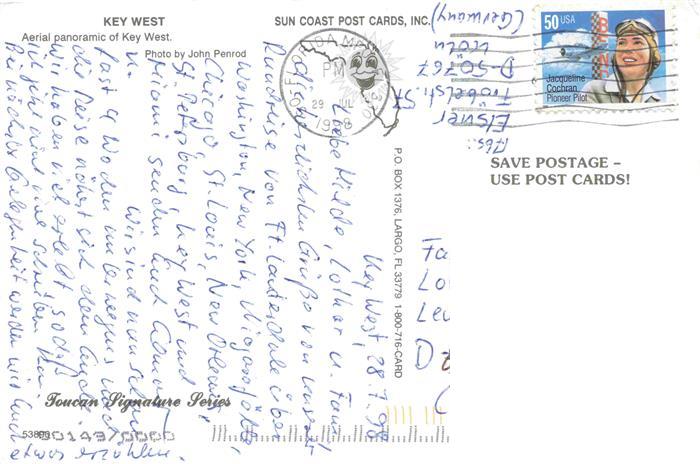 KEY WEST
Aerial panoramic of Key West.
Photo by John Penrod
SUN COAST POST CARDS, INC.
P.O. BOX 1376, LARGO, FL 33779 1-800-716-CARD
FLORIDA
PM
29 JUL
1998
50 USA
Jacqueline
Cochran
Pioneer Pilot
SAVE POSTAGE –
USE POST CARDS!
Abs:
Elsner
Fröbelstr.
D-50767
Köln
(Germany)
Key West, 28.7.98
Liebe Hilde, Lothar u. Fam.
die herzlichsten Grüße von unserer
Rundreise von Ft. Lauderdale über
Washington, New York, Niagarafälle,
Chicago, St. Louis, New Orleans,
St. Petersburg, Key West und
Miami senden Euch
Wir sind nun schon
fast 4 Wochen unterwegs und
die Reise nähert sich dem Ende.
Wir haben viel erlebt, sodaß
ich jetzt nicht viel schreiben kann.
Bei nächster Gelegenheit werden wir Euch
etwas erzählen.
Fa
Lo
Le
D-
Toucan Signature Series
53899